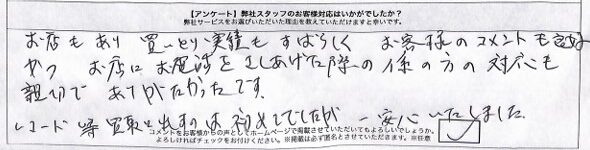 【アンケート】弊社スタッフのお客様対応はいかがでしたか？
弊社サービスをお選びいただいた理由を教えていただけますと幸いです。
お店もあり 買いとり実績も すばらしく お客様のコメントも良好
かつ お店にお電話をさしあげた際の係の方の対応も
親切で ありがたかったです。
レコード等買取に出すのは初めてでしたが 一安心いたしました。
コメントをお客様からの声としてホームページで掲載させていただいてもよろしいでしょうか。
よろしければチェックをお付けください。※掲載は必ず匿名とさせていただきます。※任意